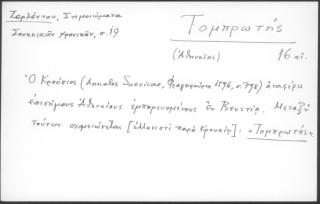 Ζερλέντου, Σημειώματα
Σουηκικῶν χρονικῶν, σ. 19
Τομπρωτής
(Ἀθηναῖος) 16 αἰ.
Ὁ Κρούσιος (Annales Suevicae, Φραγκφούρτη 1596, σ. 798) ἀναφέρει
ἐπισήμους Ἀθηναίους ἐμπορευομένους ἐν Βενετίᾳ. Μεταξὺ
τούτων σημειώνεται [ἑλληνιστὶ παρὰ Κρουσίῳ]: «Τομπρωτής».